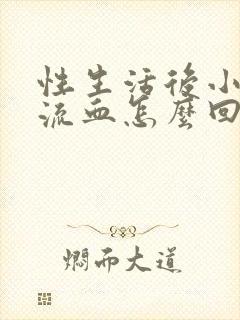 性生活後小
流血怎麼回
燜而大道